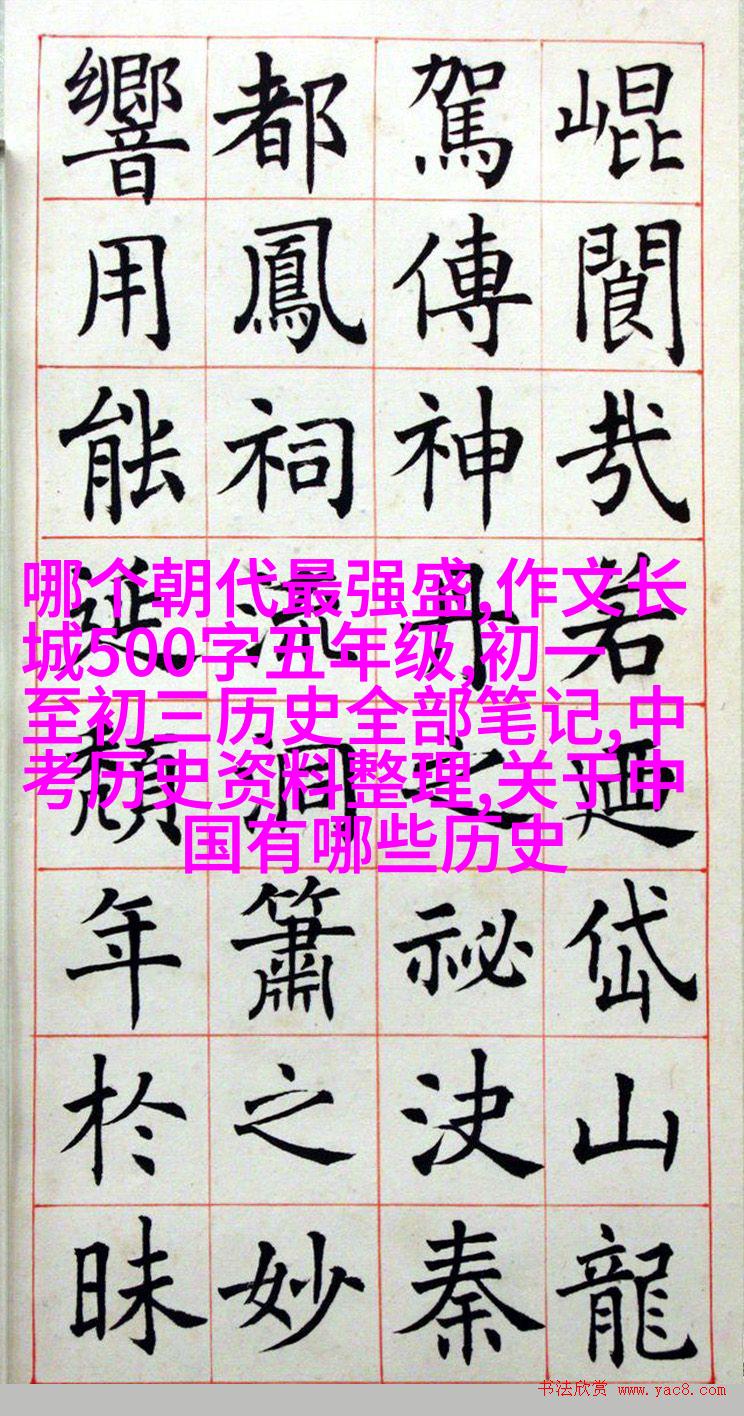 崐閬哉若迺岱山龍
駕傳神丹之祕決秦
都鳳祠流洞簫之妙
響用能延頹年於昧
哪个朝代最强盛,作文长
城500字五年级,初一
至初三历史全部笔记,中
考历史资料整理,关于中
国有哪些历史
书法欣赏 www.yac8.com